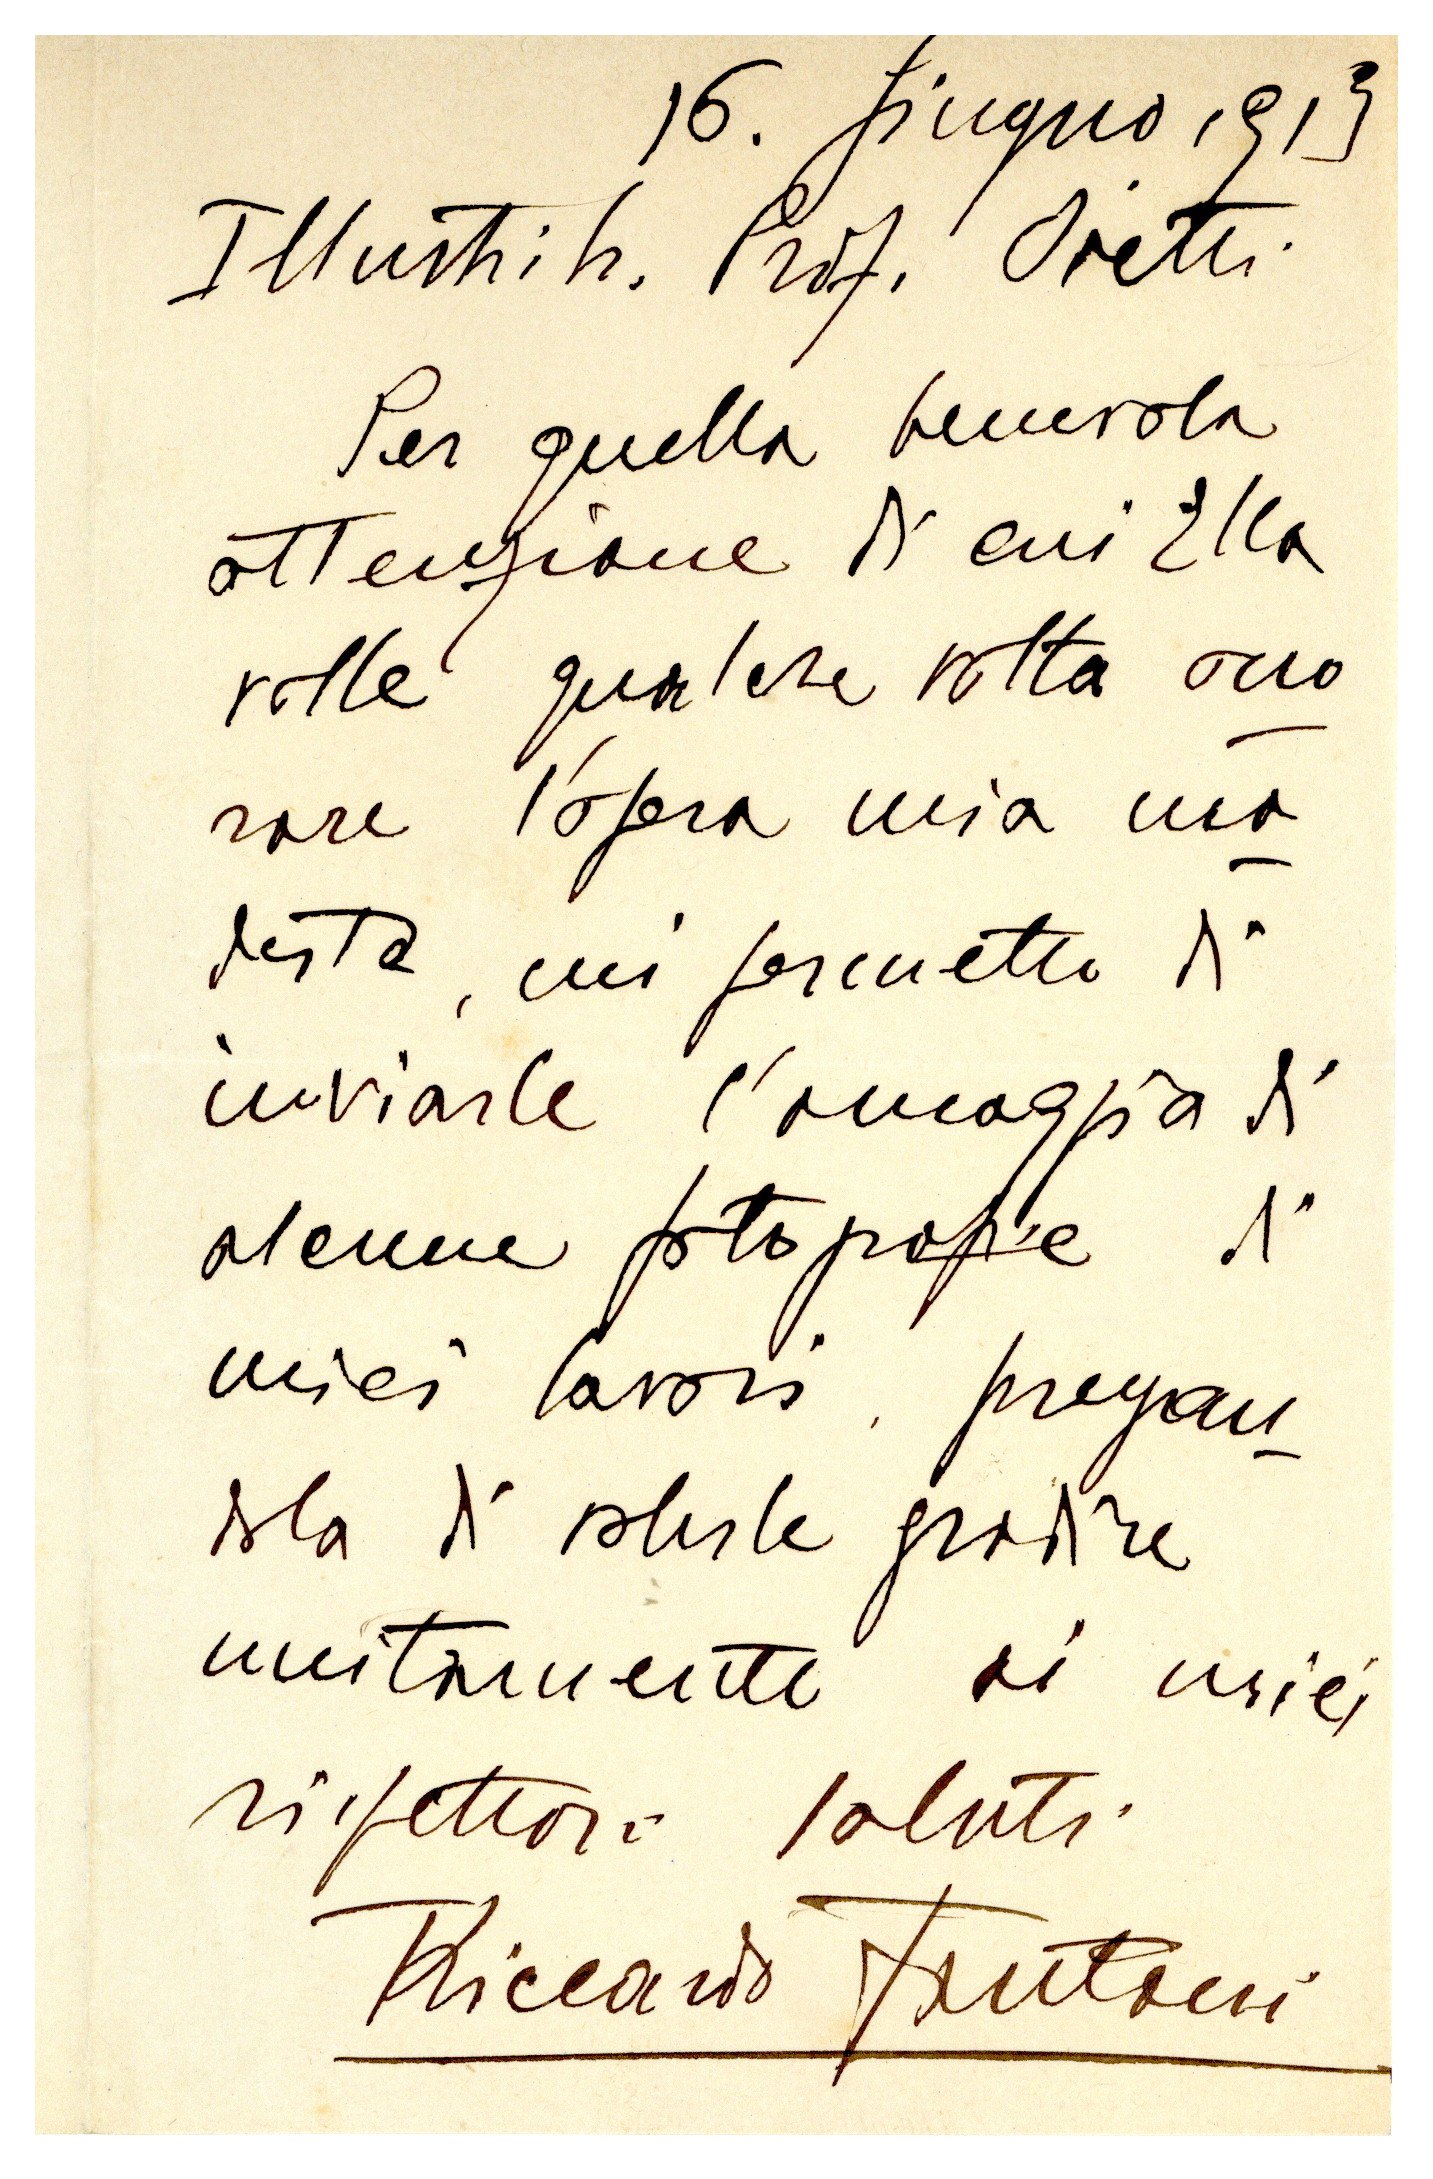 16. Giugno 1913
Illustritr. Prof. Oietti.
Per quella benevola
attenzione di cui Ella
volle qualche volta ono
rare l'opera mia mo
desta, mi permetto di
inviarle l'omaggio di
alcune fotografie di
miei lavori, pregan
dola di volerle gradire
unitamente ai miei
rispettosi saluti.
Riccardo Fantoni